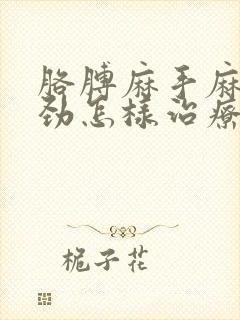 胳膊麻手麻
劲怎样治疗
栀子花